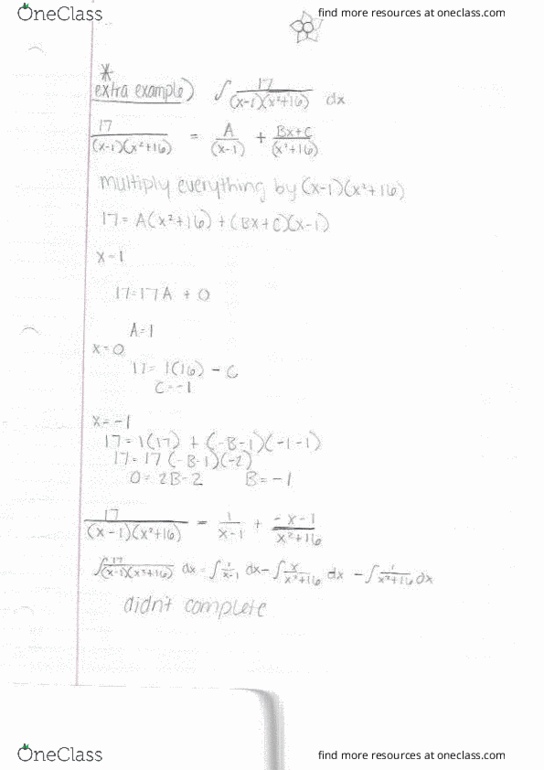 OneClass
find more resources at oneclass.com
*
extra example) ∫ 17/((x-1)(x²+16)) dx
17/((x-1)(x²+16)) = A/(x-1) + Bx+C/(x²+16)
multiply everything by (x-1)(x²+16)
17 = A(x²+16) + (Bx+C)(x-1)
x=1
17=17A + 0
A=1
x=0
17= 1(16) - C
C=-1
x=-1
17=1(17) + (-B-1)(-1-1)
17=17 (-B-1)(-2)
0=2B-2 B=-1
17/((x-1)(x²+16)) = 1/(x-1) + -x-1/(x²+16)
∫ 17/((x-1)(x²+16)) dx = ∫ 1/(x-1) dx - ∫ x/(x²+16) dx - ∫ 1/(x²+16) dx
didn't complete
OneClass
find more resources at oneclass.com